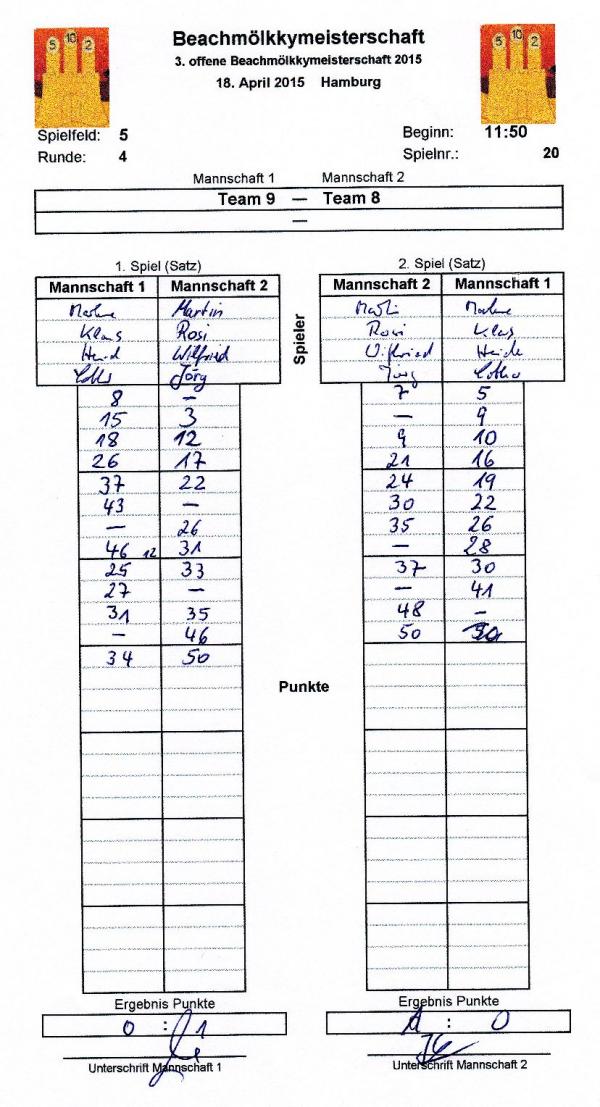 5 10 2
5 10 2
Beachmölkkymeisterschaft
3. offene Beachmölkkymeisterschaft 2015
18. April 2015 Hamburg
Spielfeld: 5 Beginn: 11:50
Runde: 4 Spielnr.: 20
Mannschaft 1 Mannschaft 2
Team 9 — Team 8
—
1. Spiel (Satz) 2. Spiel (Satz)
Mannschaft 1 Mannschaft 2 Mannschaft 2 Mannschaft 1
Spieler
Martin
Klaus Rosi Rosi Klaus
Wilfried Wilfried Heide
Jörg Jörg Lothar
8 — 7 5
15 3 — 9
18 12 9 10
26 17 21 16
37 22 24 19
43 — 30 22
— 26 35 26
46 12 31 — 28
25 33 37 30
27 — — 41
31 35 48 —
— 46 50
34 50
Punkte
Ergebnis Punkte Ergebnis Punkte
0 : 1 1 : 0
Unterschrift Mannschaft 1 Unterschrift Mannschaft 2